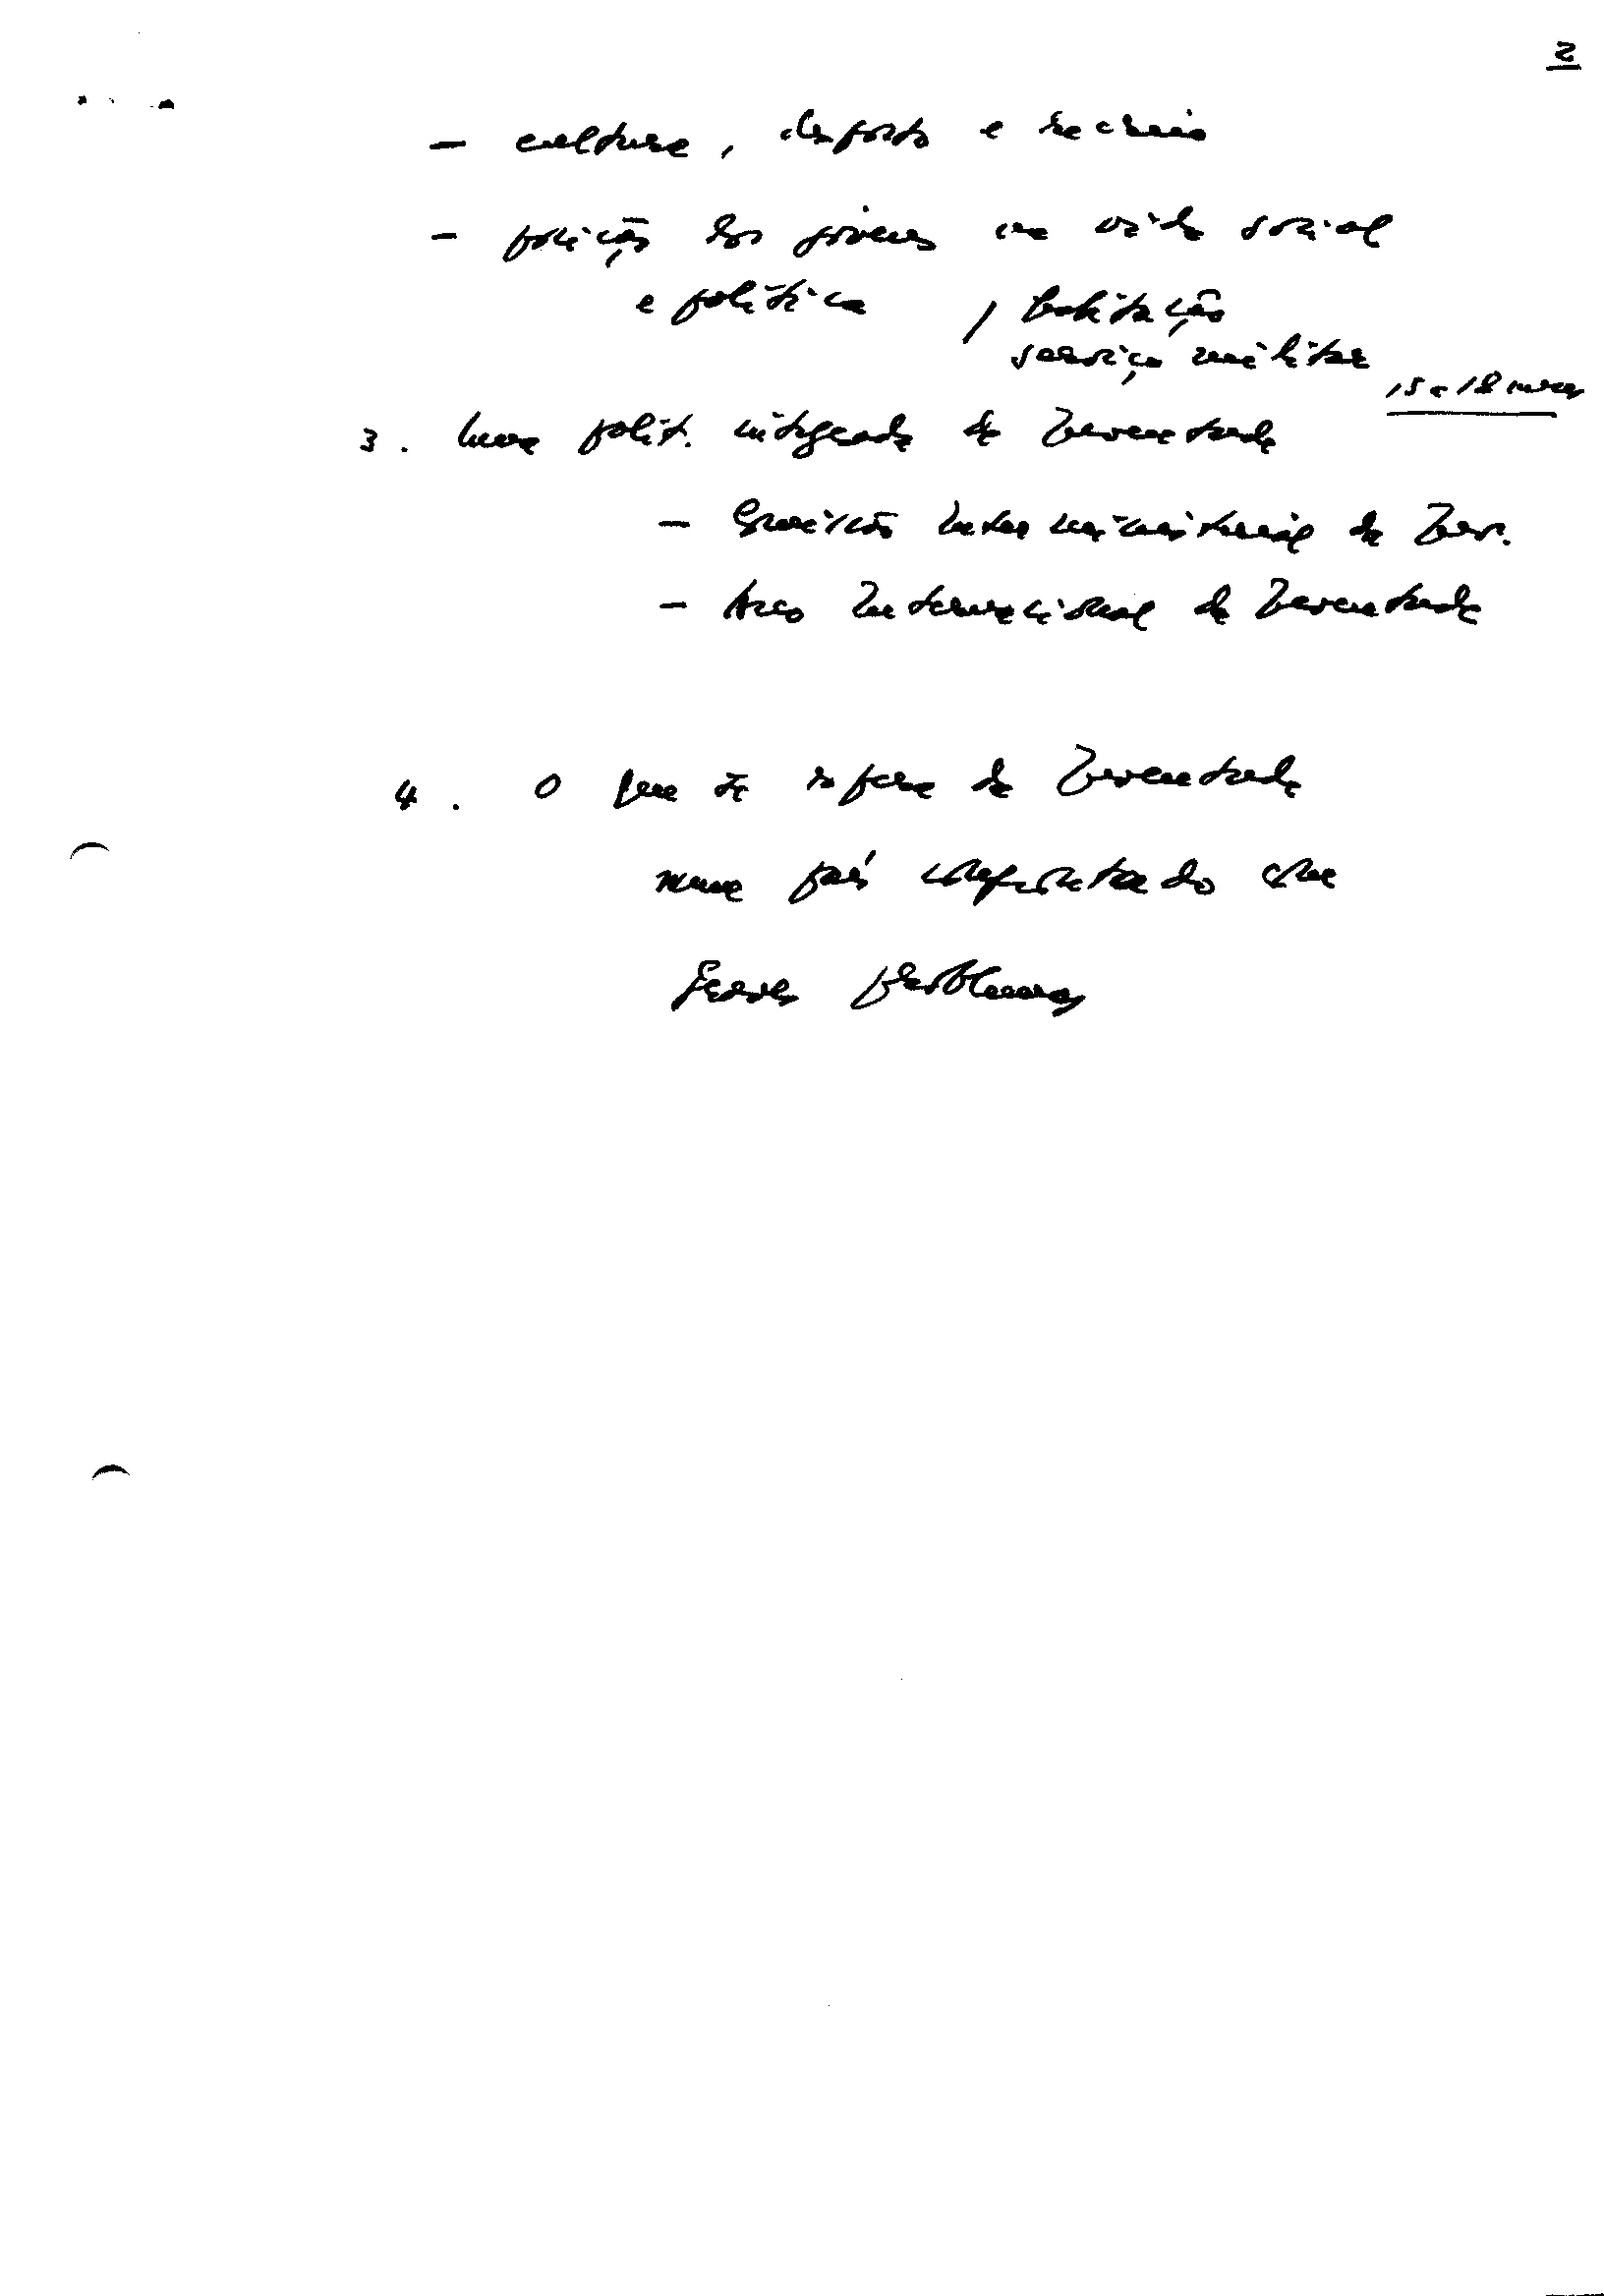 2
- cultura, desporto e recreio
- posição dos jovens na vida social
e política / habitação
serviço militar
15 a 18 meses
3. Uma polít. integrada de Juventude
- Comissão Interministerial de Juv.
- Ano Internacional de Juventude
4. O que se espera da Juventude
num país confrontado com
graves problemas